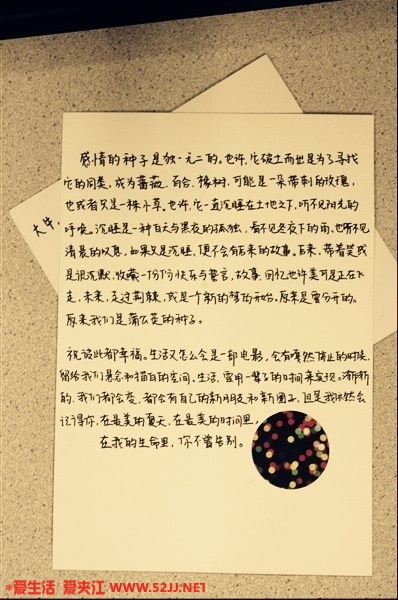 大牛,
感情的种子是独一无二的。也许,它破土而出是为了寻找
它的同类,成为蔷薇、百合、橡树,可能是一朵带刺的玫瑰,
也或者只是一株小草。也许,它一直沉睡在土地之下,听不见阳光的
呼唤。沉睡是一种白天与黑夜的孤独,看不见冬夜下的雨,也听不见
清晨的叹息,如果只是沉睡,便不会有后来的故事。后来,带着笑或
是沉默,收藏一份份快乐与誓言,故事,回忆也许美可是正在飞
走,未来,走过荆棘,或是一个新的梦的开始。原来是要分开的。
原来我们是蒲公英的种子。
祝彼此都幸福。生活又怎么会是一部电影,会有嘎然停止的时候,
留给我们悬念和 的空间。生活,需用一辈子的时间来实现。渐渐
的,我们都会变,都会有自己的新朋友和新圈子,但是我依然会
记得你,在最美的夏天,在最美的时间里,
在我的生命里,你不曾告别。
*爱生活 爱夹江 WWW.52JJ.NET